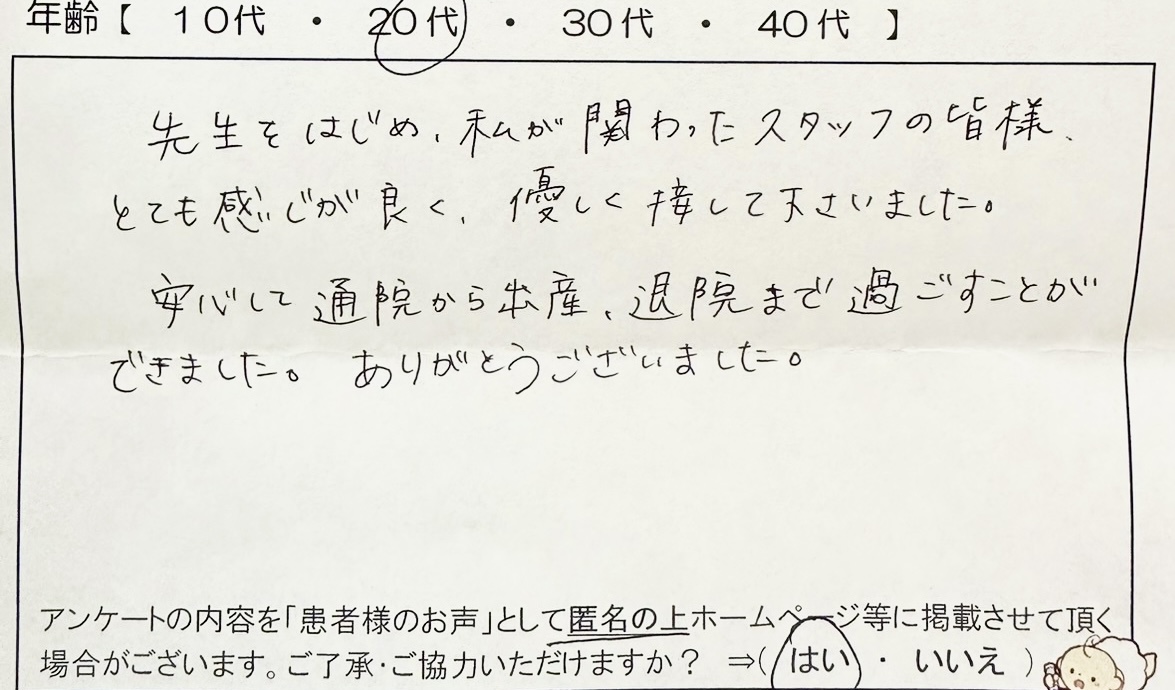 年齢【 10代 ・ 20代 ・ 30代 ・ 40代 】
先生をはじめ、私が関わったスタッフの皆様、
とても感じが良く、優しく接して下さいました。
安心して通院から出産、退院まで過ごすことが
できました。ありがとうございました。
アンケートの内容を「患者様のお声」として匿名の上ホームページ等に掲載させて頂く
場合がございます。ご了承・ご協力いただけますか？ ⇒( はい ・ いいえ )